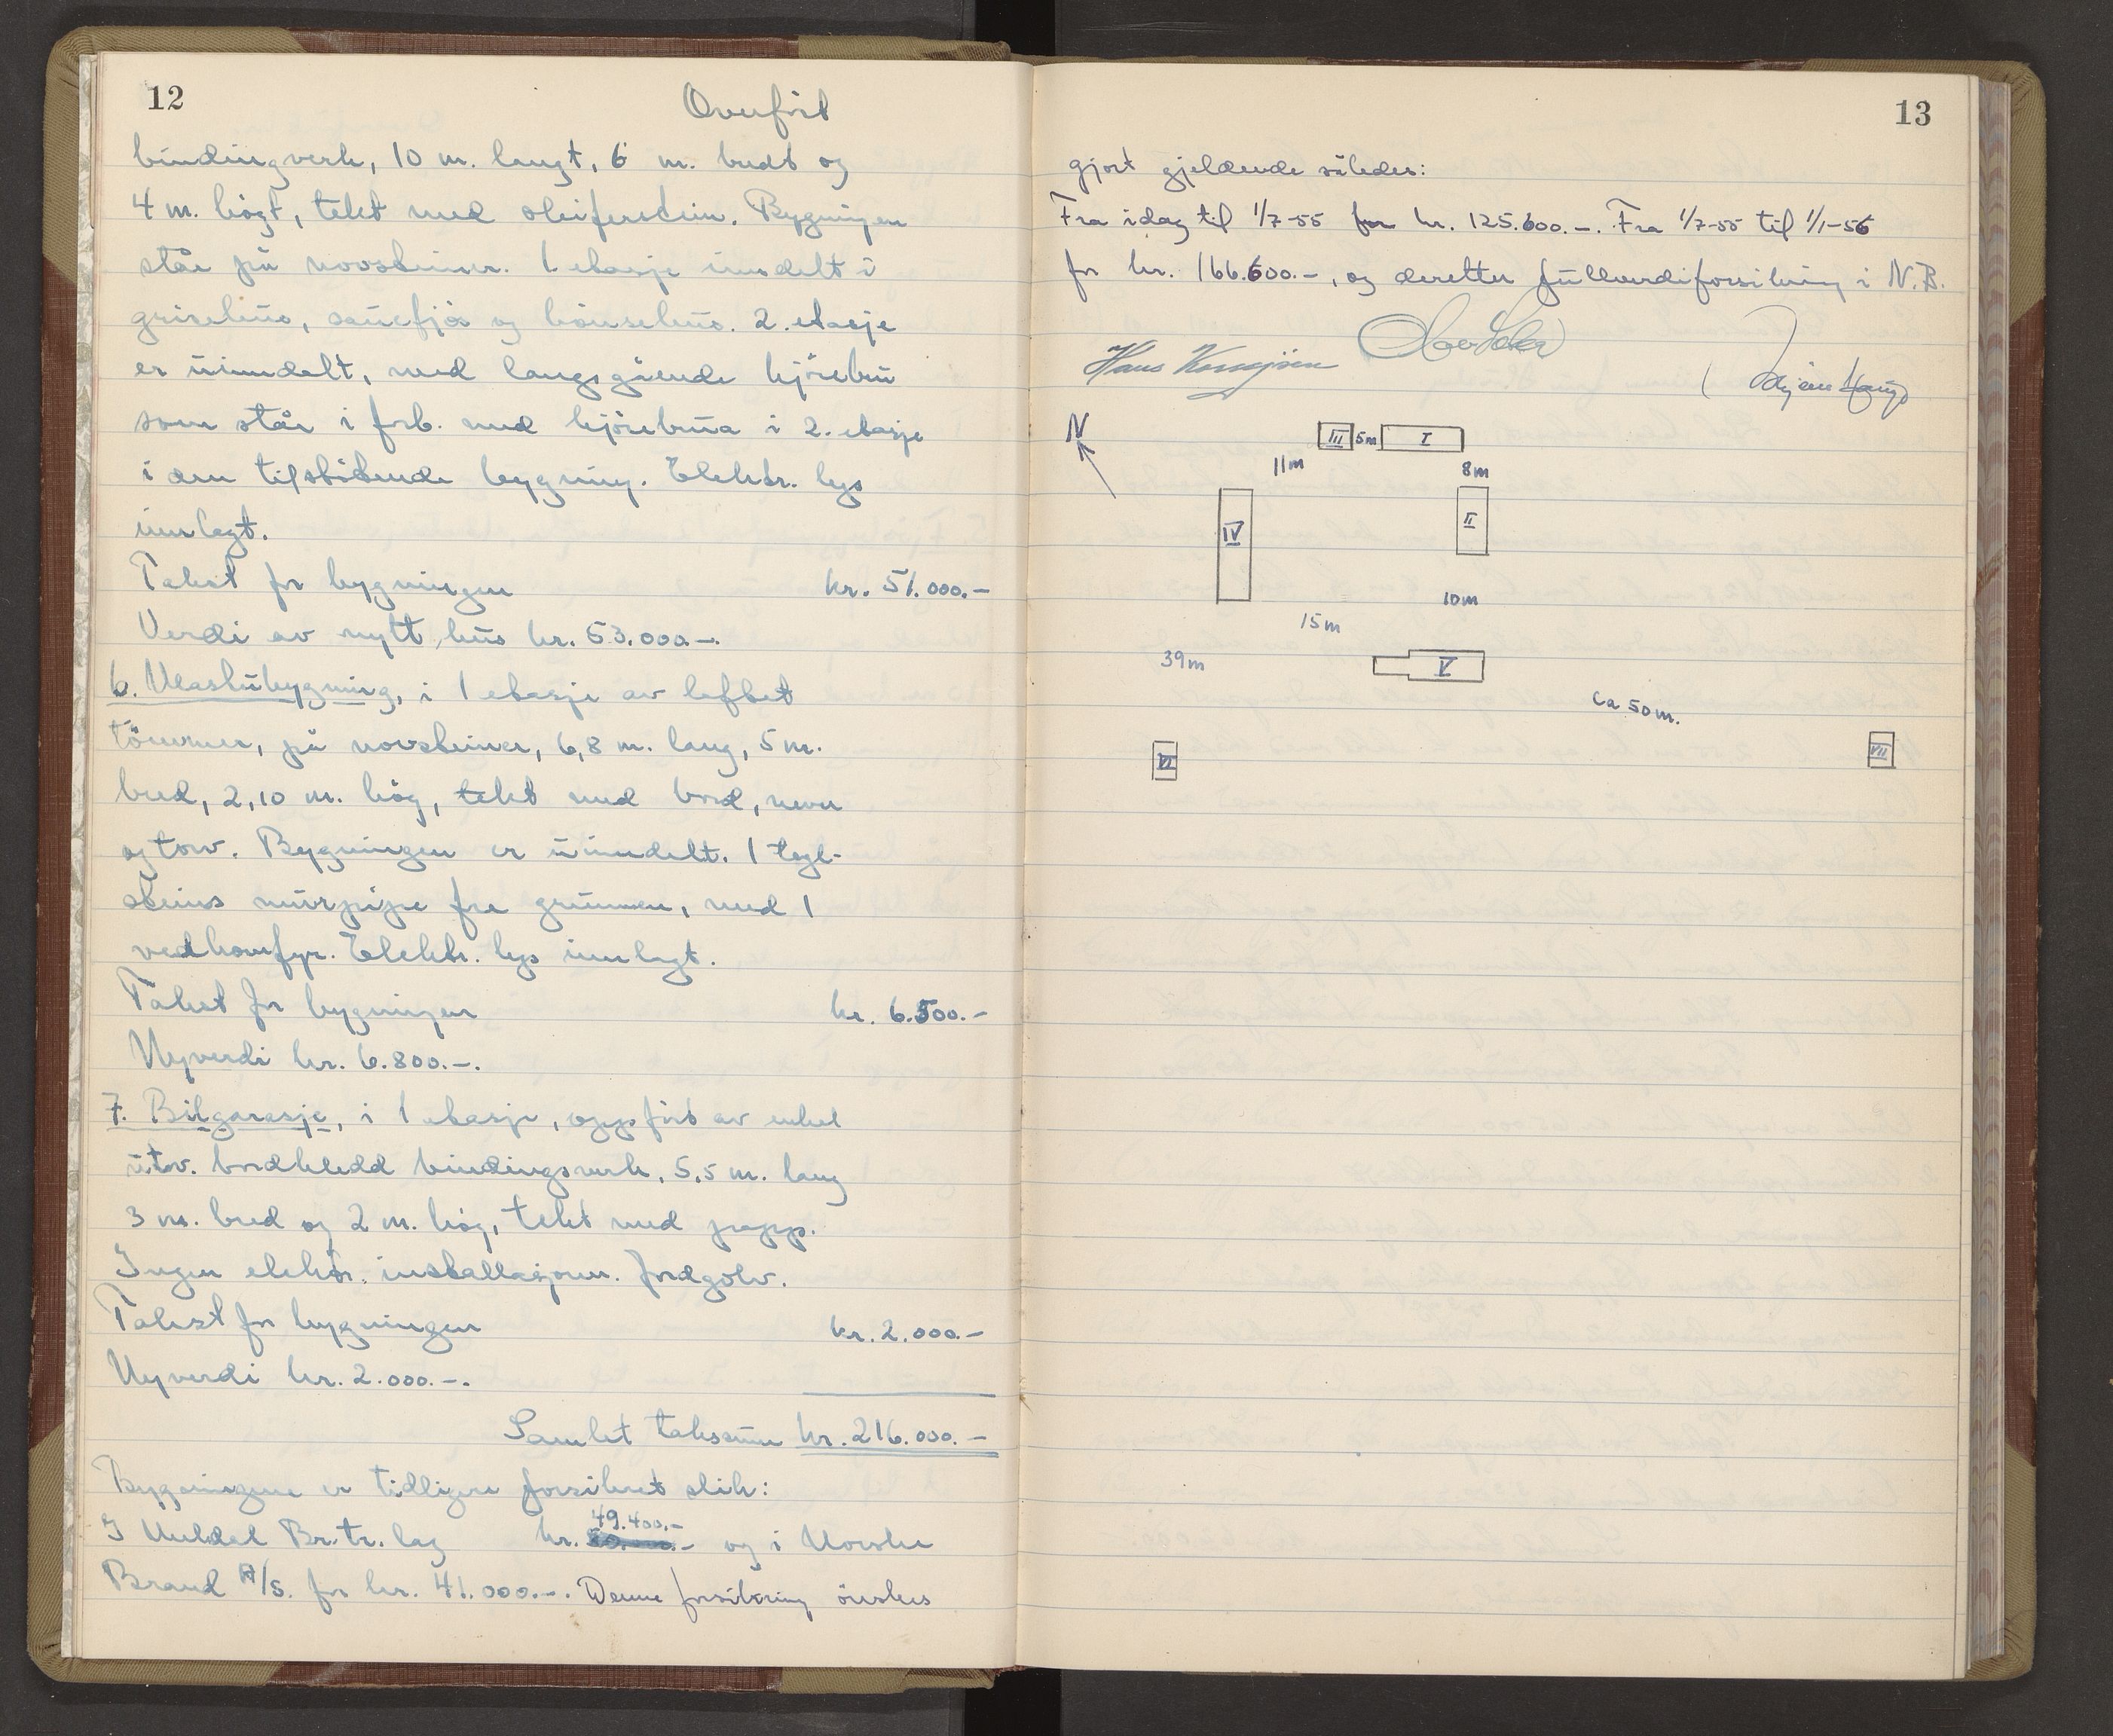 12
Overført
bindingverk, 10 m. langt, 6 m. bredt og
4 m. högt, tekt med skiferstein. Bygningen
står på novsteiner. 1 etasje inndelt i
grisehus, sauefjös og hönsehus. 2. etasje
er uinndelt, med langsgående kjörebru
som står i forb. med kjörebrua i 2. etasje
i den tilstötende bygning. Elektr. lys
innlagt.
Takst for bygningen kr. 51.000.-
Verdi av nytt hus kr. 53.000.-.
6. Vaskebygning, i 1 etasje av laftet
tömmer, på novsteiner, 6,8 m. lang, 5 m.
bred, 2,10 m. hög, tekt med bord, never
og torv. Bygningen er uinndelt. 1 tegl-
steins murpipe fra grunnen, med 1
vedkomfyr. Elektr. lys innlagt.
Takst for bygningen kr. 6.500.-
Nyverdi kr. 6.800.-.
7. Bilgarasje, i 1 etasje, oppfört av enkel
utv. bordkledd bindingsverk, 5,5 m. lang
3 m. bred og 2 m. hög, tekt med papp.
Ingen elektr. installasjoner. Jordgolv.
Takst for bygningen kr. 2.000.-
Nyverdi kr. 2.000.-.
Samlet takstsum kr. 216.000.-
Bygningene er tidligere forsikret slik:
49.400.-
I Br.tr. lag kr. og i Norske
Brand A/S. for kr. 41.000.-. Denne forsikring önskes
13
gjort gjeldende således:
Fra idag til 1/7-55 for kr. 125.600.-. Fra 1/7-55 til 1/1-56
for kr. 166.600.-, og deretter fullverdiforsikring i N.B.
Hans
N
III 5m I
11m 8m
IV II
10m
15m
39m V
Ca 50 m.
VI VII